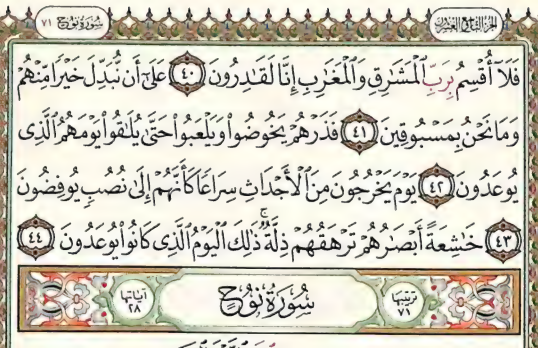 الجزء التاسع والعشرون سُورَةُ نُوح ٧١
فَلَآ أُقْسِمُ بِرَبِّ ٱلْمَشَٰرِقِ وَٱلْمَغَٰرِبِ إِنَّا لَقَٰدِرُونَ ٤٠ عَلَىٰٓ أَن نُّبَدِّلَ خَيْرًا مِّنْهُمْ
وَمَا نَحْنُ بِمَسْبُوقِينَ ٤١ فَذَرْهُمْ يَخُوضُوا۟ وَيَلْعَبُوا۟ حَتَّىٰ يُلَٰقُوا۟ يَوْمَهُمُ ٱلَّذِى
يُوعَدُونَ ٤٢ يَوْمَ يَخْرُجُونَ مِنَ ٱلْأَجْدَاثِ سِرَاعًا كَأَنَّهُمْ إِلَىٰ نُصُبٍ يُوفِضُونَ
٤٣ خَٰشِعَةً أَبْصَٰرُهُمْ تَرْهَقُهُمْ ذِلَّةٌ ۚ ذَٰلِكَ ٱلْيَوْمُ ٱلَّذِى كَانُوا۟ يُوعَدُونَ ٤٤
ترتيبها ٧١ سُورَةُ نُوحٍ آياتها ٢٨